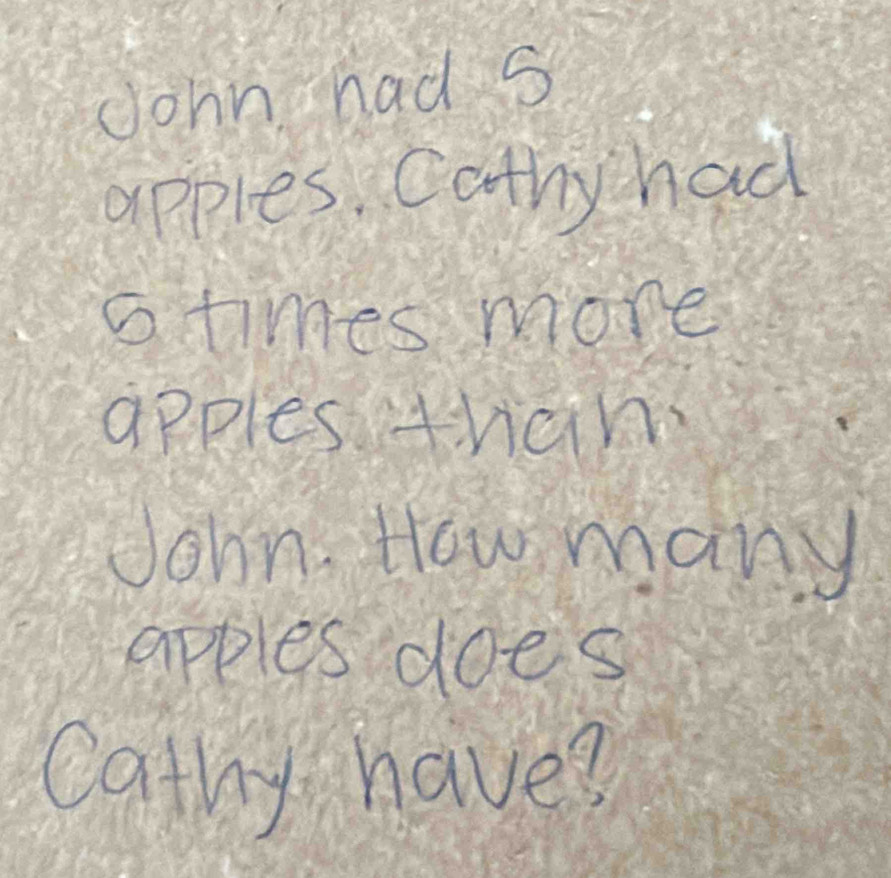 John had 5
apples. Cathy had
5 times more
apples than
John. How many
apples does
Cathy have?